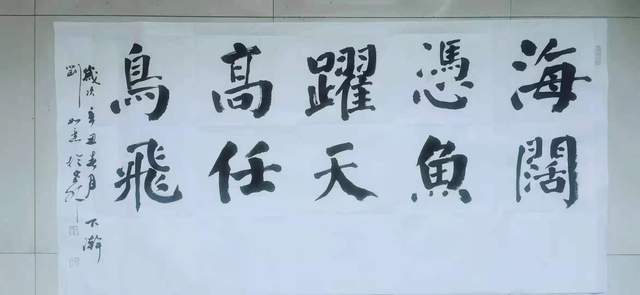 海闊
憑魚
躍天
高任
鳥飛
歲次辛丑春月下澣
劉